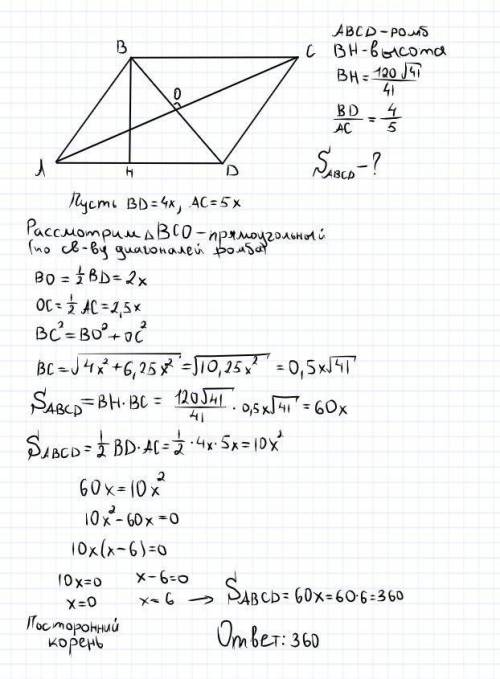 B
C
O
A
H
D
ABCD-ромб
BH-высота
BH=120√41/41
BD/AC=4/5
S_ABCD-?
Пусть BD=4x, AC=5x
Рассмотрим △BCO-прямоугольный
(по св-ву диагоналей ромба)
BO=1/2BD=2x
OC=1/2AC=2,5x
BC²=BO²+OC²
BC=√4x²+6,25x²=√10,25x²=0,5x√41
S_ABCD=BH·BC=120√41/41·0,5x√41=60x
S_ABCD=1/2BD·AC=1/2·4x·5x=10x²
60x=10x²
10x²-60x=0
10x(x-6)=0
10x=0 x-6=0
x=0 x=6 → S_ABCD=60x=60·6=360
Посторонний
корень
Ответ:360